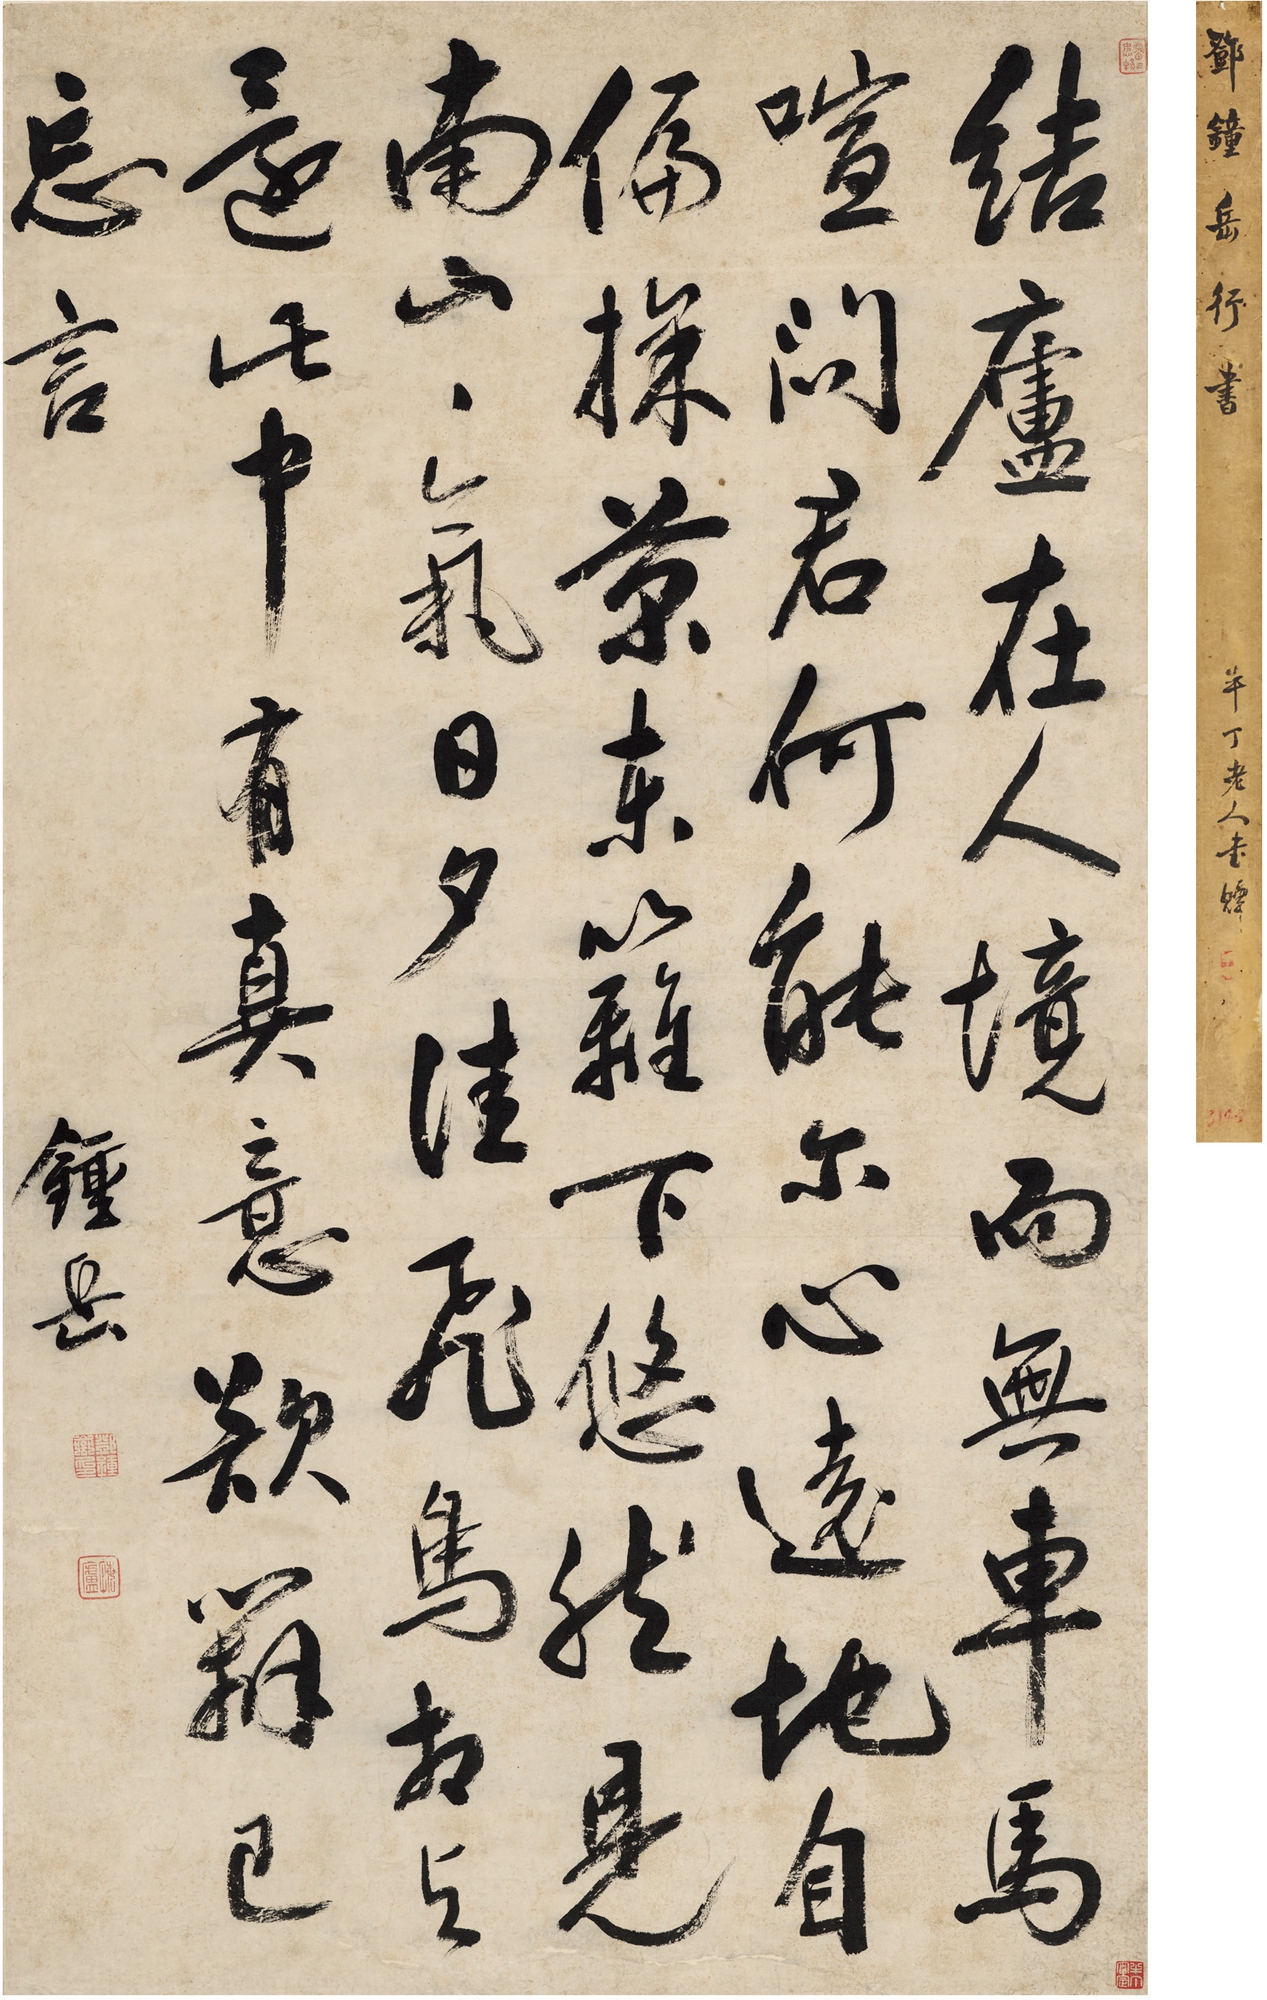 結廬在人境而無車馬
喧問君何能尔心遠地自
偏採菊東籬下悠然見
南山、氣日夕佳飛鳥相与
還此中有真意欲辯已
忘言
鍾岳
鄧鍾岳行書
半丁老人書耑